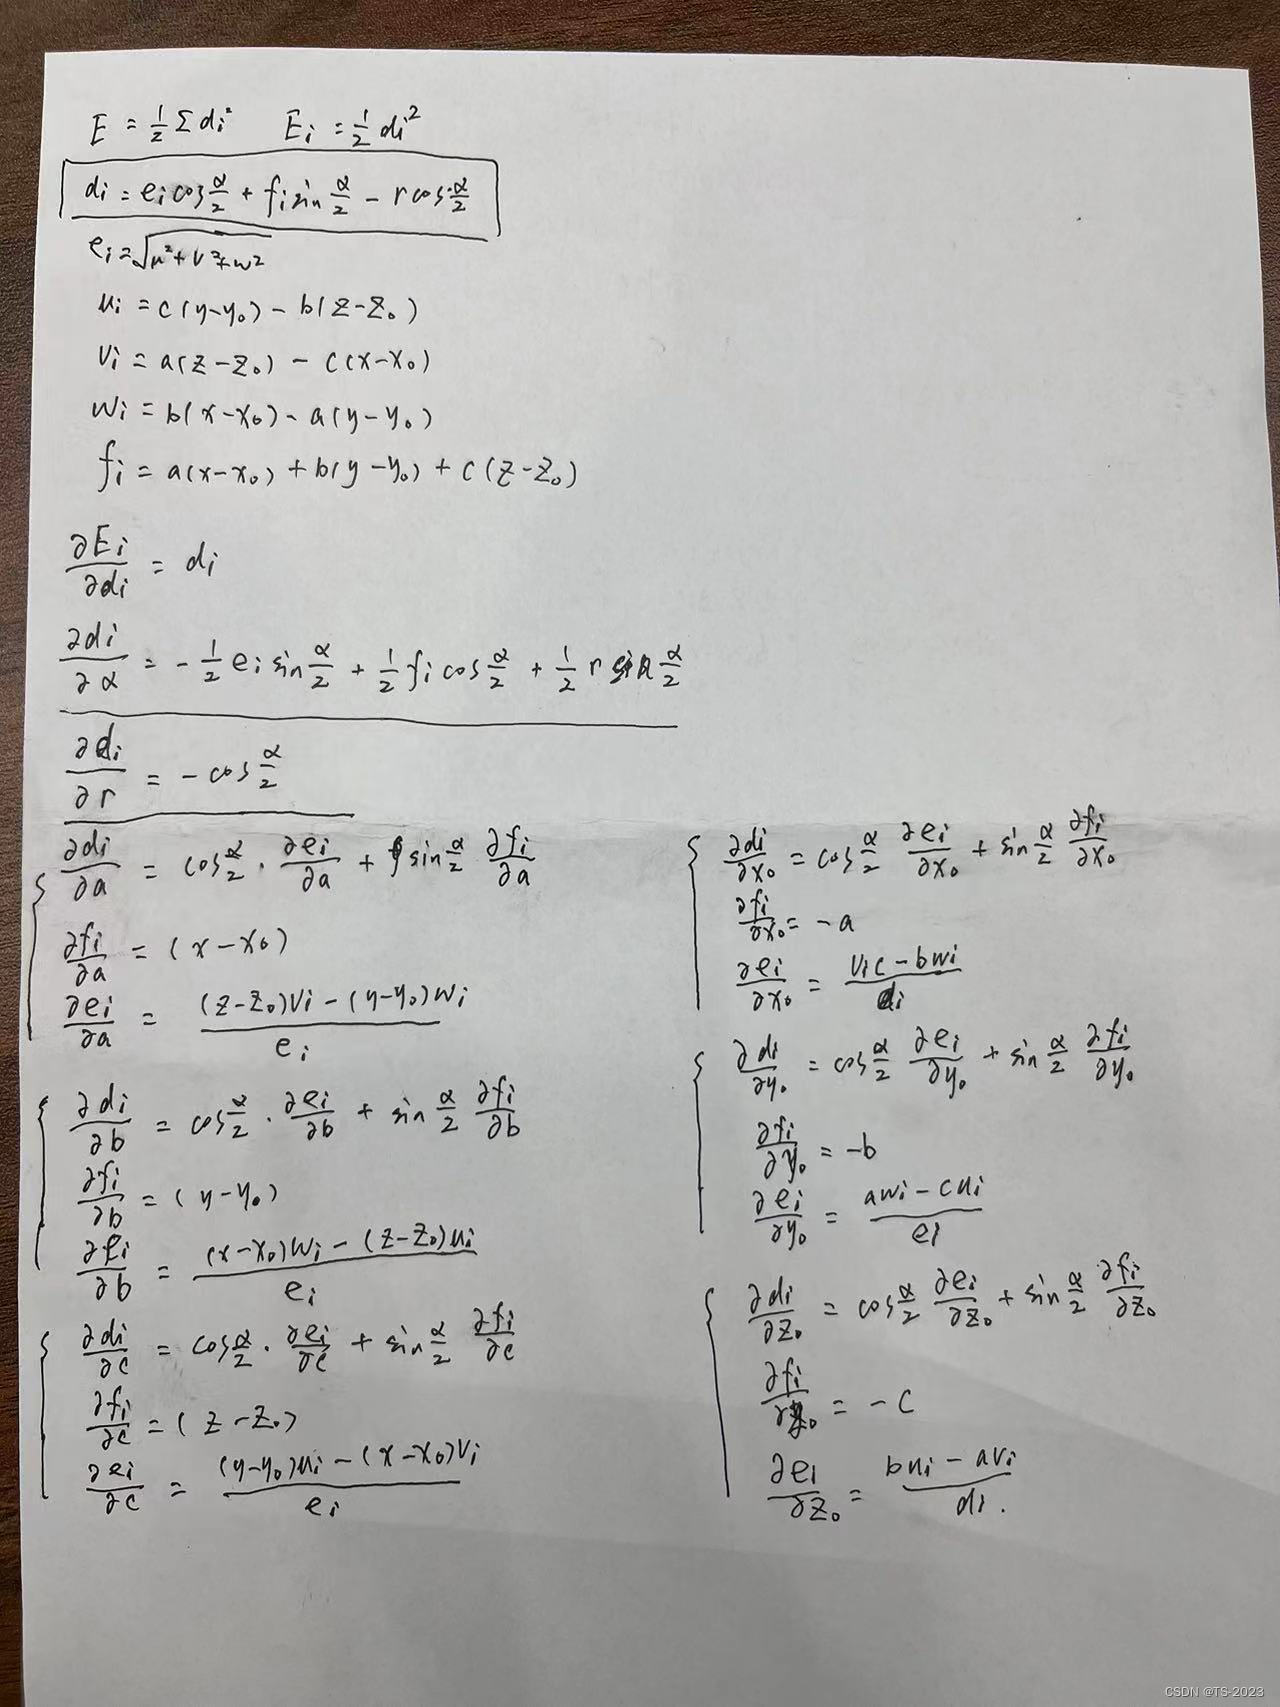 E = 1/2 Σ di²    Ei = 1/2 di²
di = ei cos α/2 + fi sin α/2 − r cos α/2
ei = √(u²+v²+w²)
ui = c(y−y₀) − b(z−z₀)
vi = a(z−z₀) − c(x−x₀)
wi = b(x−x₀) − a(y−y₀)
fi = a(x−x₀) + b(y−y₀) + c(z−z₀)
∂Ei/∂di = di
∂di/∂α = −1/2 ei sin α/2 + 1/2 fi cos α/2 + 1/2 r sin α/2
∂di/∂r = −cos α/2
∂di/∂a = cos α/2 · ∂ei/∂a + sin α/2 ∂fi/∂a
∂fi/∂a = (x−x₀)
∂ei/∂a = ((z−z₀)vi − (y−y₀)wi)/ei
∂di/∂b = cos α/2 · ∂ei/∂b + sin α/2 ∂fi/∂b
∂fi/∂b = (y−y₀)
∂ei/∂b = ((x−x₀)wi − (z−z₀)ui)/ei
∂di/∂c = cos α/2 · ∂ei/∂c + sin α/2 ∂fi/∂c
∂fi/∂c = (z−z₀)
∂ei/∂c = ((y−y₀)ui − (x−x₀)vi)/ei
∂di/∂x₀ = cos α/2 ∂ei/∂x₀ + sin α/2 ∂fi/∂x₀
∂fi/∂x₀ = −a
∂ei/∂x₀ = (vic − bwi)/di
∂di/∂y₀ = cos α/2 ∂ei/∂y₀ + sin α/2 ∂fi/∂y₀
∂fi/∂y₀ = −b
∂ei/∂y₀ = (awi − cui)/ei
∂di/∂z₀ = cos α/2 ∂ei/∂z₀ + sin α/2 ∂fi/∂z₀
∂fi/∂z₀ = −c
∂ei/∂z₀ = (bui − avi)/di.
CSDN @TS-2023